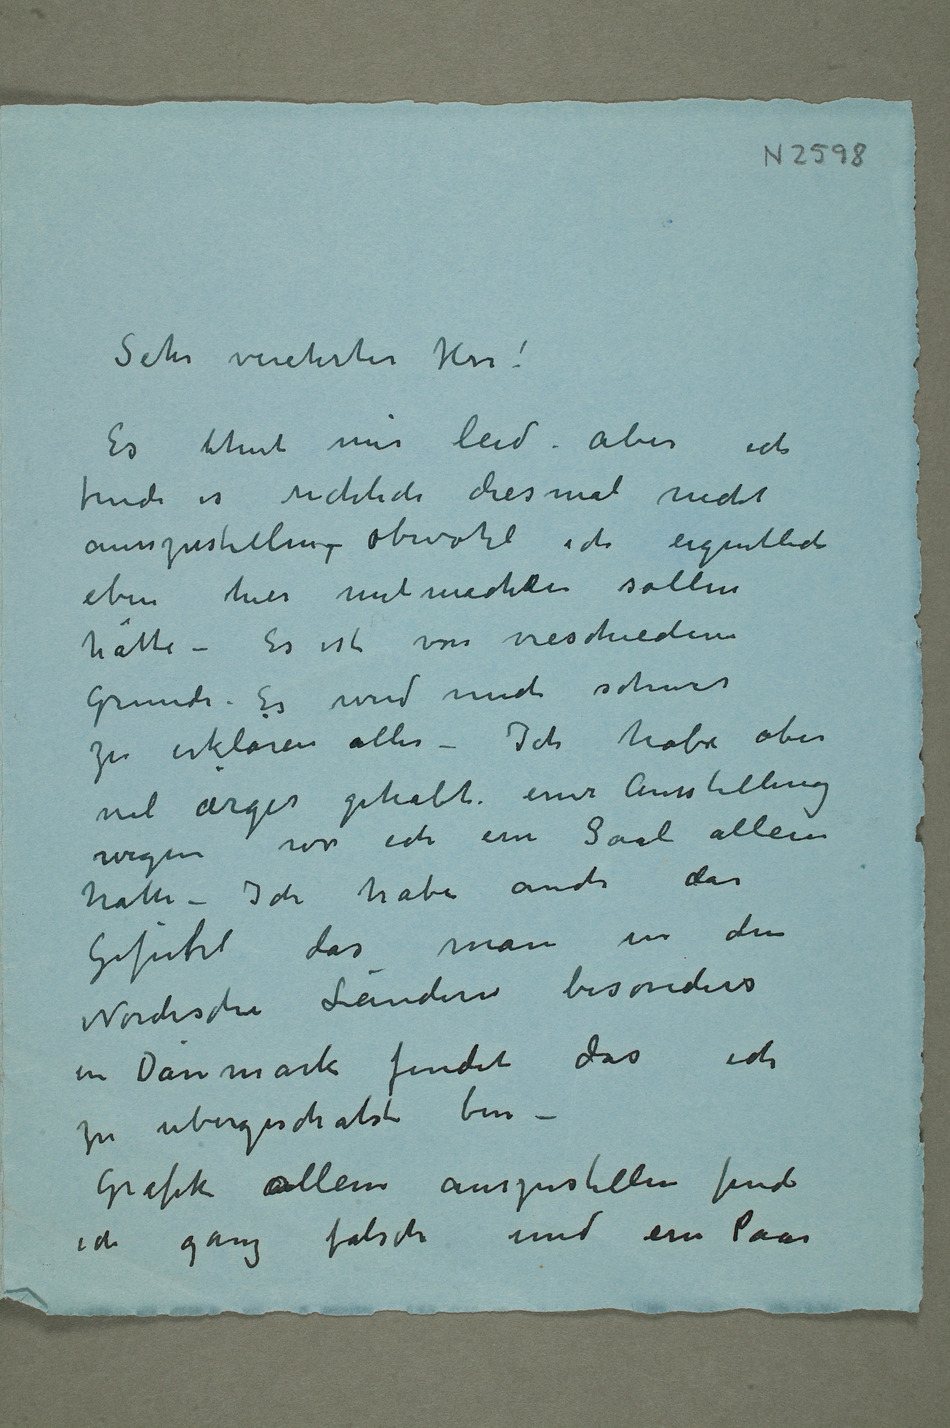 N 2598
Sehr verehrter Herr!
Es thut mir leid. aber ich
finde es richtich diesmal nicht
auszustellen, obwohl ich eigentlich
eben hier mitmachen sollen
hätte – Es ist von verschiedene
Grunde. Es wird mich schwer
zu erklären alles – Ich habe aber
viel ärger gehabt. einer Ausstellung
wegen wo ich ein Saal allein
hatte – Ich habe auch das
Gefühl das man in den
Nordische Ländern besonders
in Dänmark findet das ich
zu ubergeschätst bin –
Grafik allein auszustellen find
ich ganz falsch und ein Paar